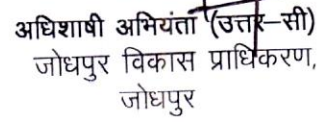 अधिशाषी अभियंता (उत्तर–सी)
जोधपुर विकास प्राधिकरण,
जोधपुर